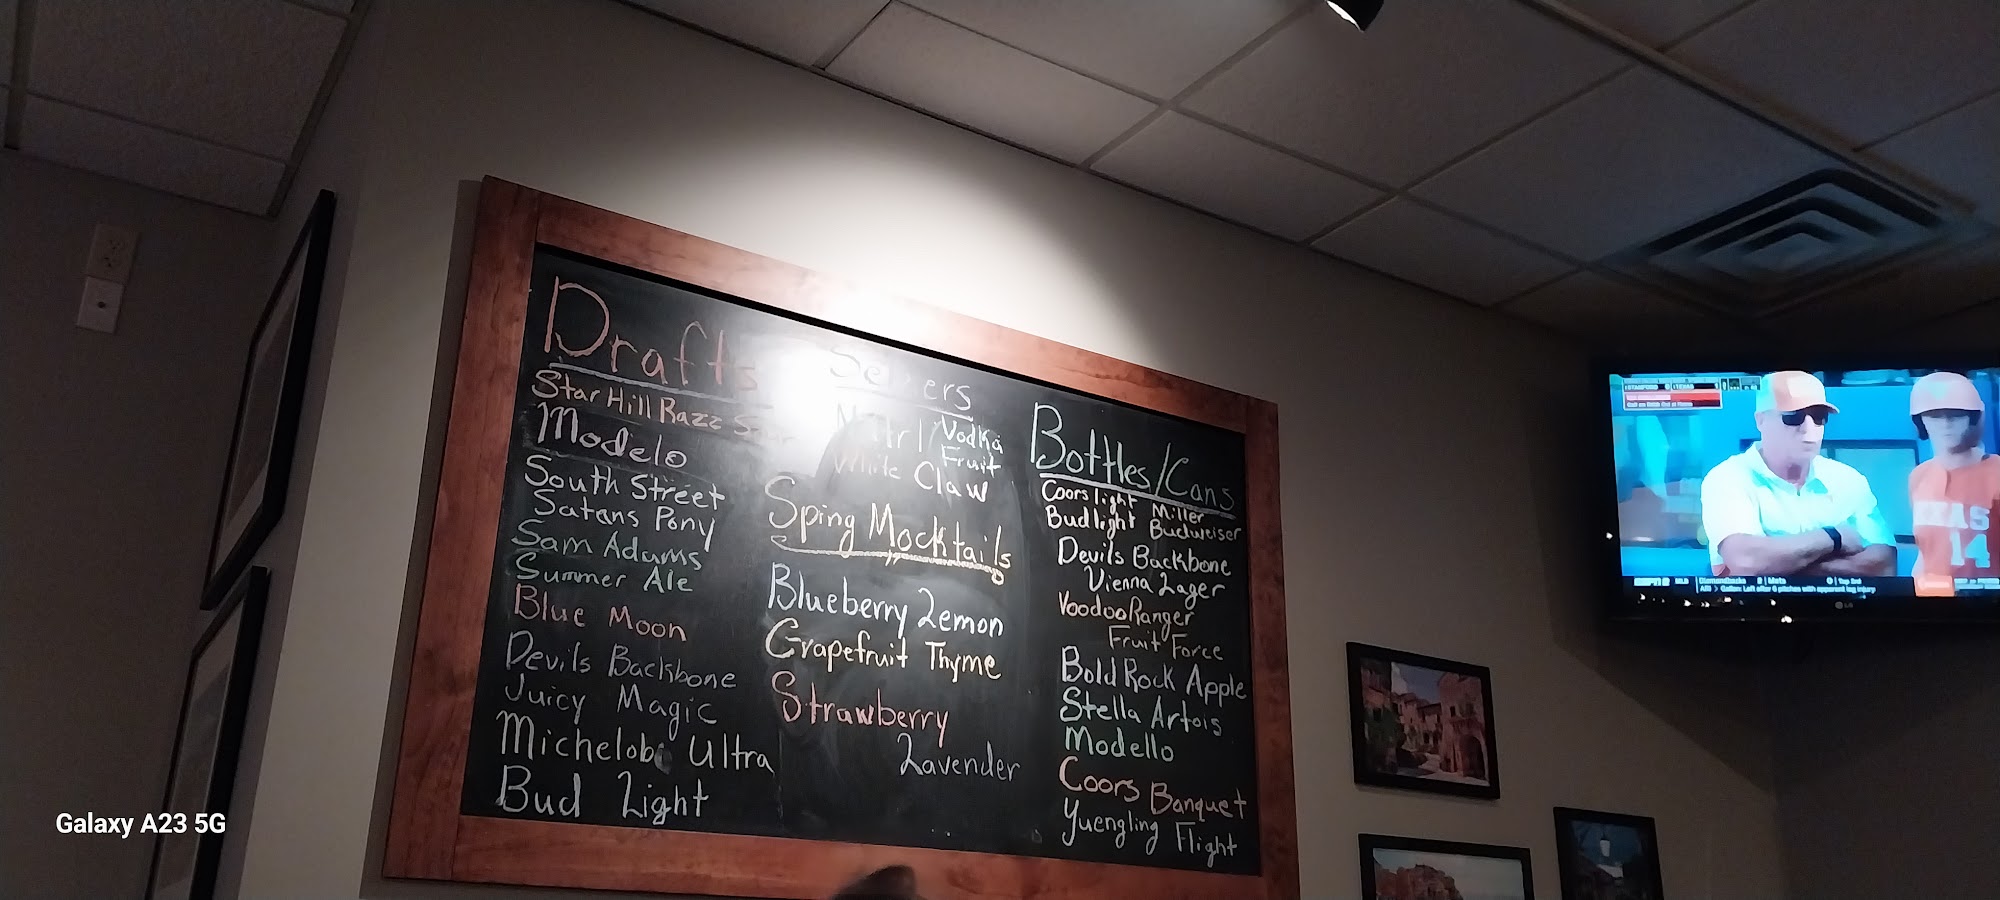 Drafts
Star Hill Razz
Modelo
South Street
Satans Pony
Sam Adams
Summer Ale
Blue Moon
Devils Backbone
Juicy Magic
Michelob Ultra
Bud Light
Vodka
Fruit
White Claw
Sping Mocktails
Blueberry Lemon
Grapefruit Thyme
Strawberry
Lavender
Bottles/Cans
Coors light Miller
Bud light Budweiser
Devils Backbone
Vienna Lager
Voodoo Ranger
Fruit Force
Bold Rock Apple
Stella Artois
Modello
Coors Banquet
Yuengling Flight
14
LG
Galaxy A23 5G